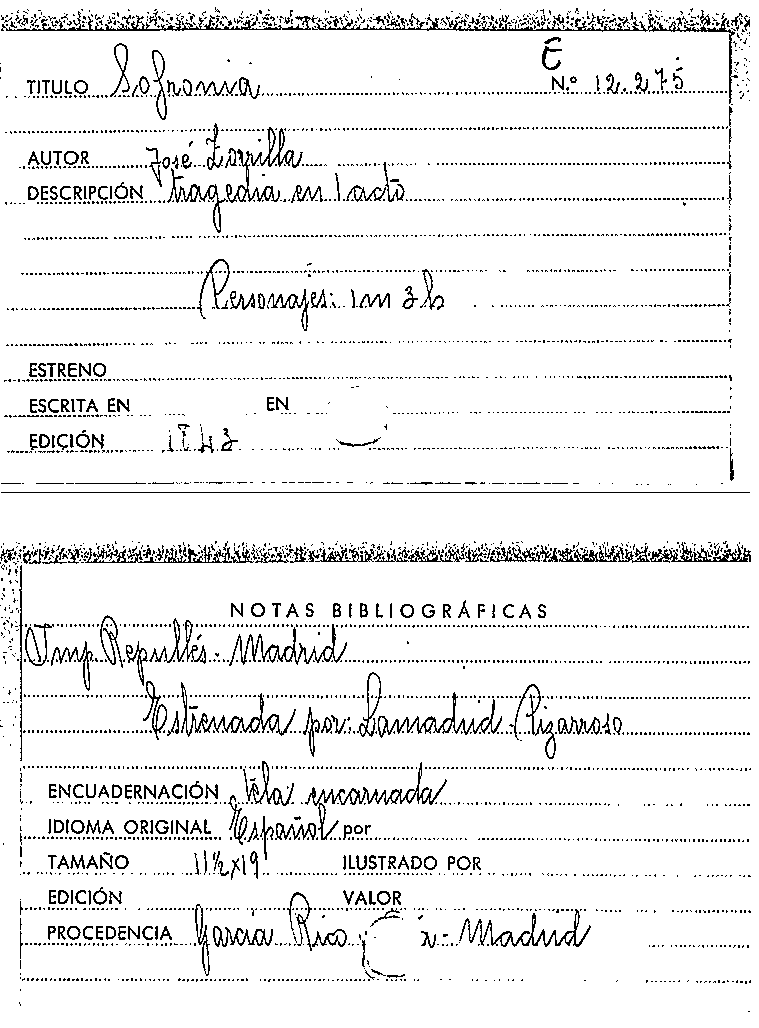 E
TITULO Sofronia N.º 12.275
AUTOR José Zorrilla
DESCRIPCIÓN tragedia en 1 acto
Personajes: 1m 3h
ESTRENO
ESCRITA EN EN
EDICIÓN 1843
NOTAS BIBLIOGRÁFICAS
Imp. Repullés - Madrid
Estrenada por: Lamadrid - Pizarroso
ENCUADERNACIÓN tela encarnada
IDIOMA ORIGINAL Español por
TAMAÑO 11½x19 ILUSTRADO POR
EDICIÓN VALOR
PROCEDENCIA García Rico - Madrid